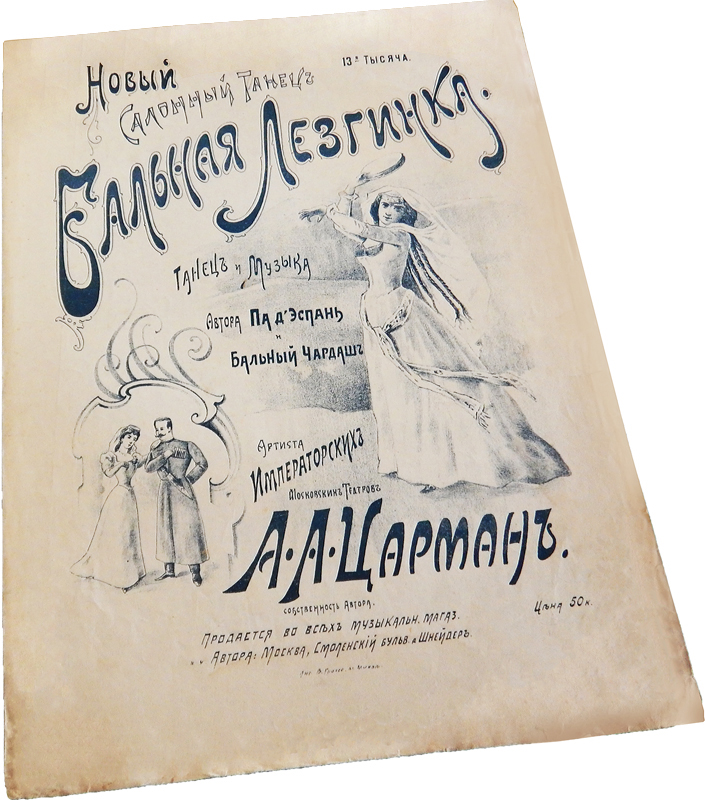 13я ТЫСЯЧА.
Новый
Салонный Танецъ
Бальная Лезгинка.
Танецъ и Музыка
Автора Па д'Эспань
и
Бальный Чардашъ
Артиста
Императорскихъ
Московскихъ Театровъ
А.А.Царманъ.
собственность Автора.
Цѣна 50 к.
Продается во всѣхъ музыкальн. магаз.
Автора: Москва, Смоленскій бульв. д. Шнейдеръ.